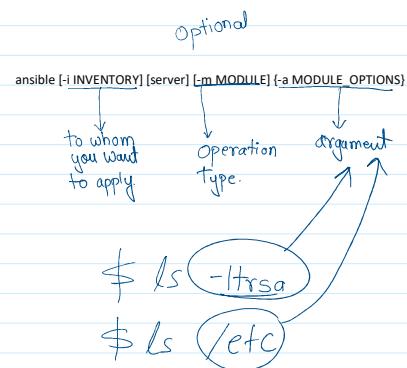 Optional
ansible [-i INVENTORY] [server] [-m MODULE] {-a MODULE_OPTIONS}
to whom
you want
to apply.
operation
type.
argument
$ ls -ltrsa
$ ls /etc